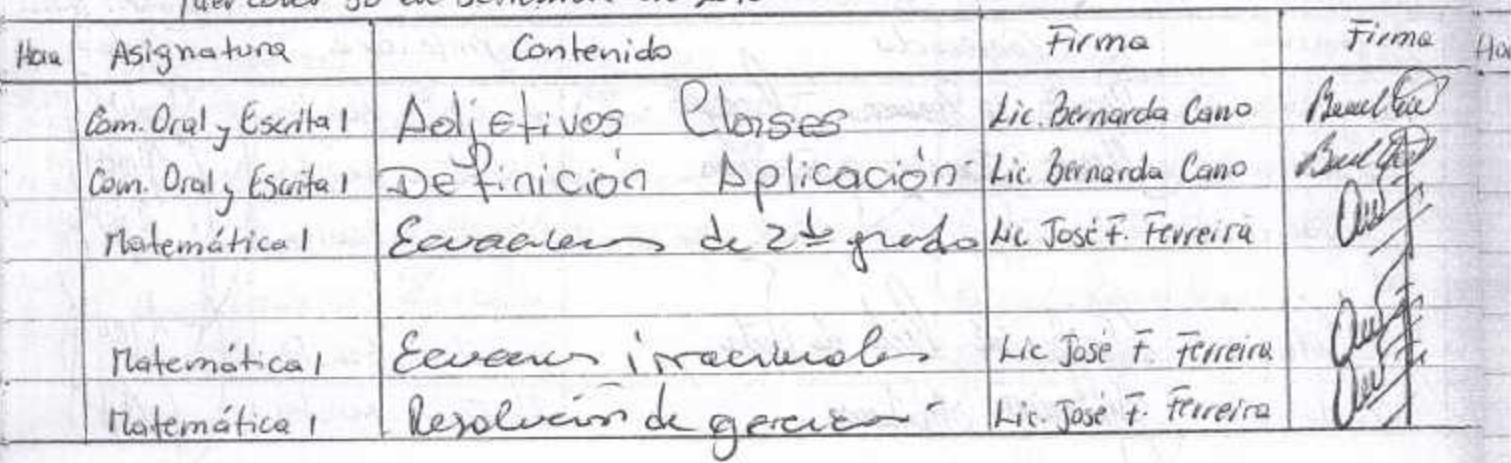 30 de
Hora Asignatura Contenido Firma Firma
Com. Oral y Escrita 1 Adjetivos Clases Lic. Bernarda Cano
Com. Oral y Escrita 1 Definición Aplicación Lic. Bernarda Cano
Matemática 1 Ecuaciones de 2do grado Lic José F. Ferreira
Matemática 1 Ecuaciones irracionales Lic José F. Ferreira
Matemática 1 Resolución de Lic. José F. Ferreira